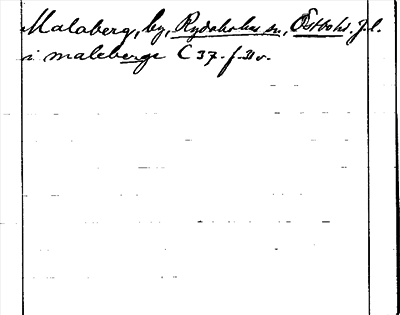 Malaberg, by, Rydaholms sn., Östbohd. J.l.
i maleberge C 37. f. II v.